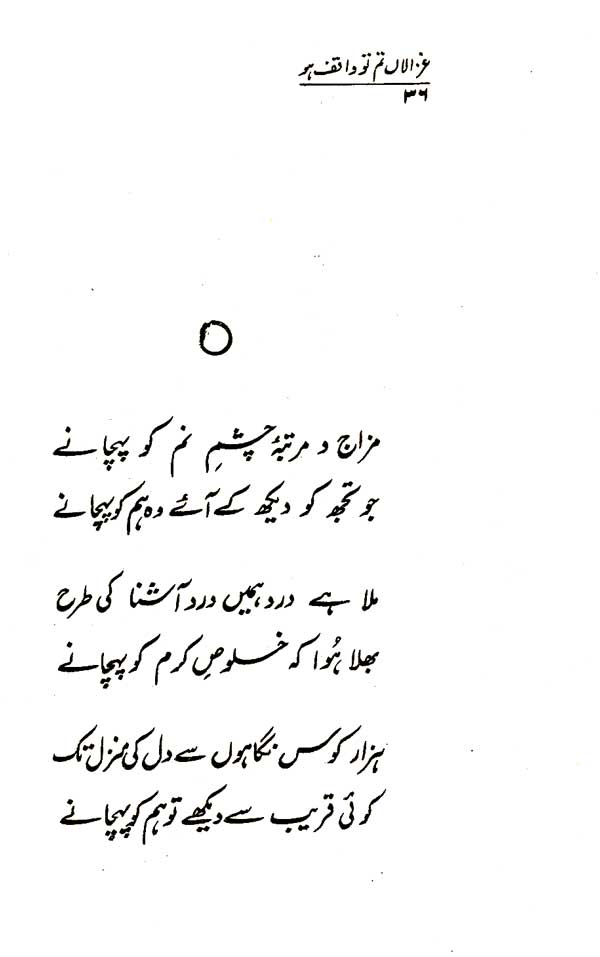 غزالاں تم تو واقف ہو
۳۶
مزاج و مرتبۂ چشمِ نم کو پہچانے
جو تجھ کو دیکھ کے آئے وہ ہم کو پہچانے
ملا ہے درد ہمیں درد آشنا کی طرح
بھلا ہُوا کہ خلوصِ کرم کو پہچانے
ہزار کوس نگاہوں سے دل کی منزل تک
کوئی قریب سے دیکھے تو ہم کو پہچانے